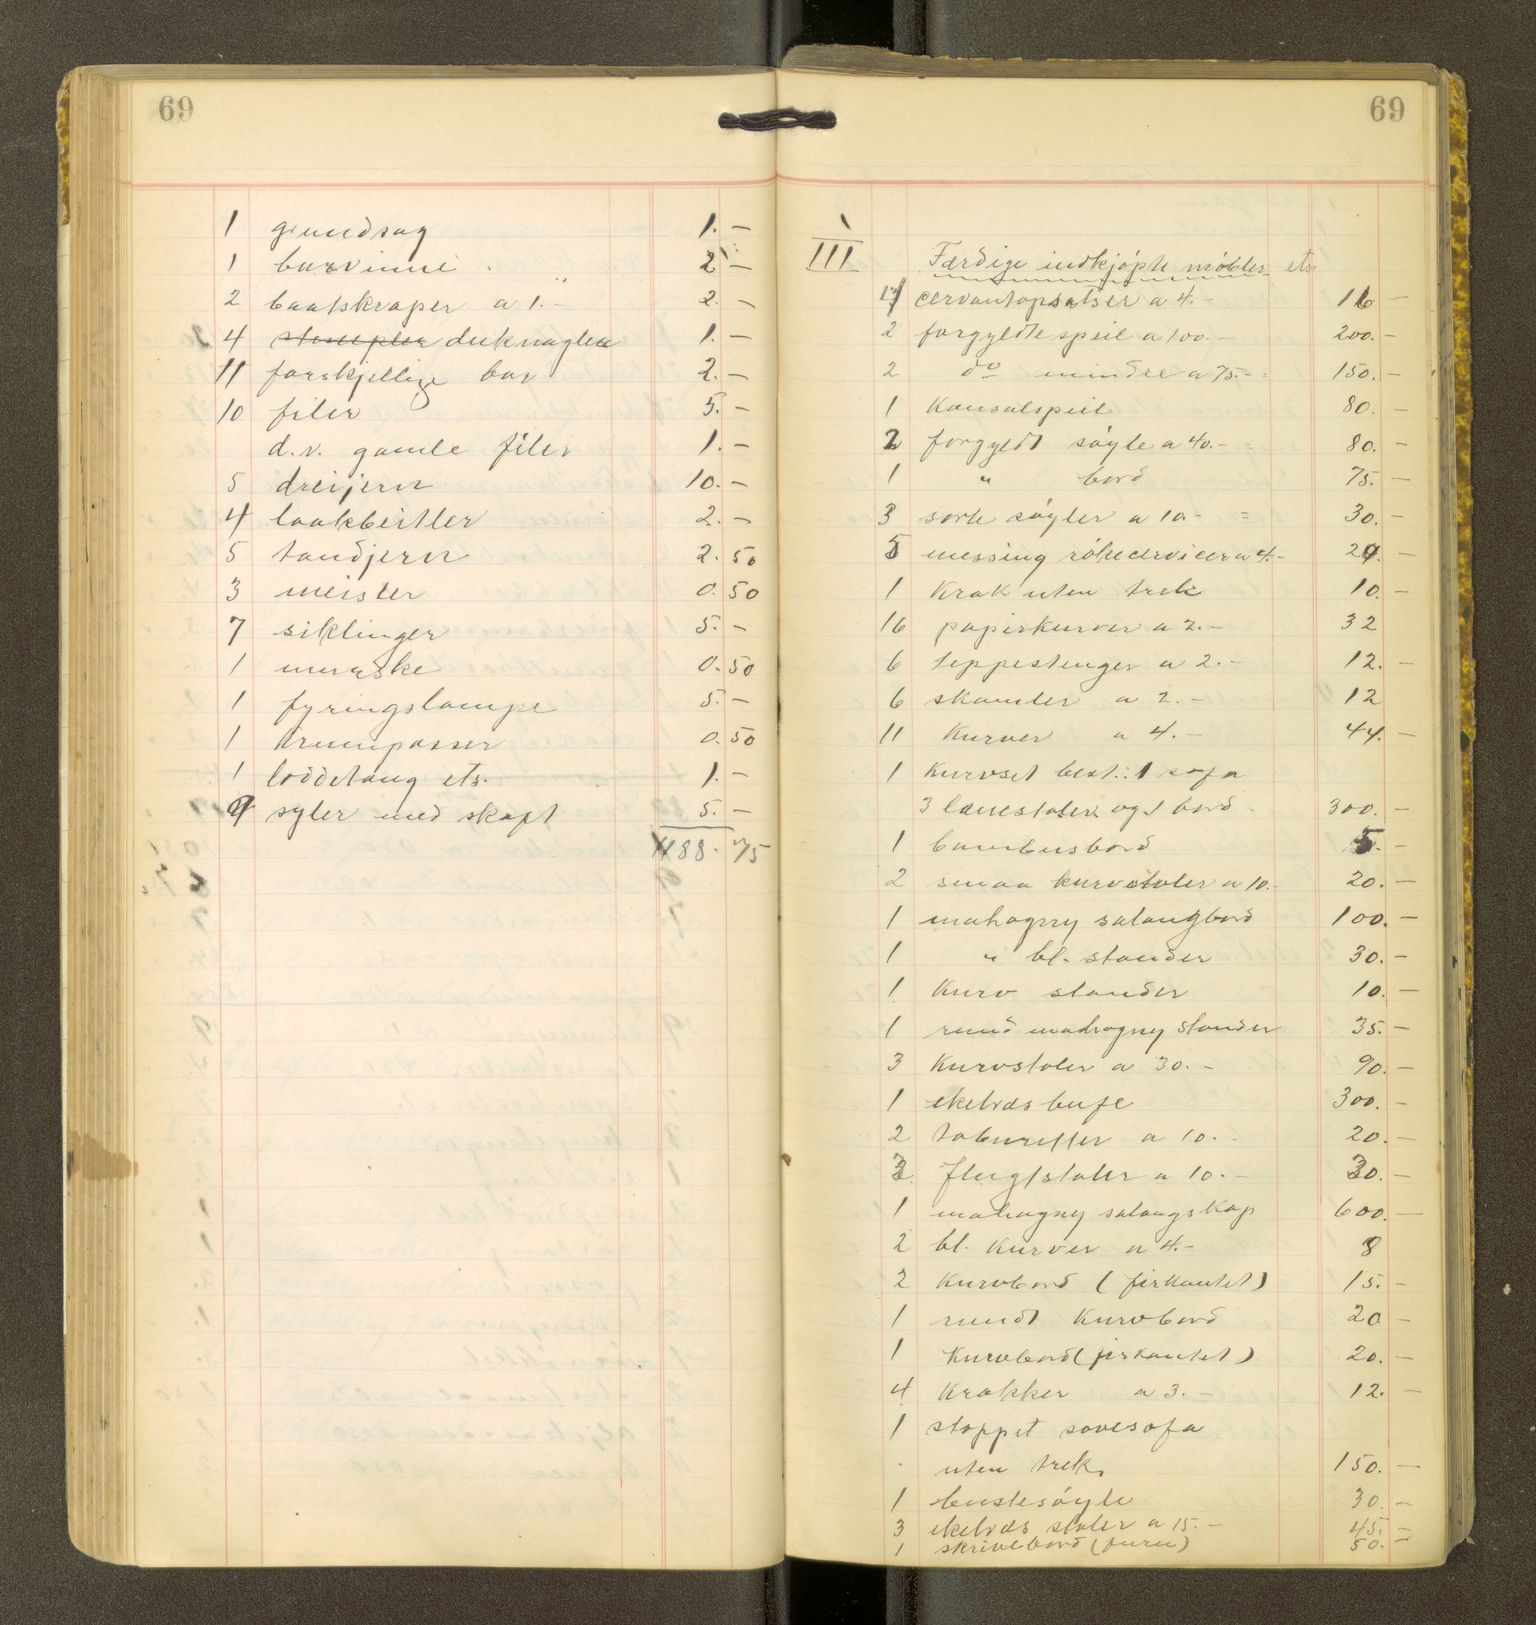 69
1 grundsag 1. —
1 borvinne 2 —
2 baatskraper a 1.— 2. —
4 stempler duknagler 1. —
11 forskjellige bor 2. —
10 filer 5. —
d.v. gamle filer 1. —
5 dreijern 10. —
4 laakbeitler 2. —
5 tandjern 2. 50
3 meisler 0. 50
7 siklinger 5. —
1 murske 0. 50
1 fyringslampe 5. —
1 Krumpasser 0. 50
1 loddetang ets. 1. —
9 syler med skapt 5. —
188. 75
69
III Færdige indkjøpte møbler ets
4 cervantopsatser a 4.— 16 —
2 forgyldte speil a 100.— 200. —
2 do mindre a 75.— 150. —
1 Konsolspeil 80. —
2 forgyldt søyle a 40.— 80. —
1 " bord 75. —
3 sorte søyler a 10.— 30. —
5 messing rökecervicer a 4.— 20. —
1 Krak uten trek 10. —
16 papirkurver a 2.— 32
6 teppestenger a 2.— 12. —
6 skamler a 2.— 12
11 Kurver a 4.— 44. —
1 Kurvset best.: 1 sofa
3 lænestoler og 1 bord 300. —
1 bambusbord 5. —
2 smaa kurvstoler a 10.— 20. —
1 mahogny salongbord 100. —
1 " bl. stander 30. —
1 Kurv stander 10. —
1 rund mahogny stander 35. —
3 Kurvstoler a 30.— 90. —
1 ekelræs bufe 300. —
2 taburetter a 10.— 20. —
3 flugtstoler a 10.— 30. —
1 mahogny salongskap 600. —
2 bl. Kurver a 4.— 8
2 Kurvbord (firkantet) 15. —
1 rundt Kurvbord 20 —
1 Kurvbord (firkantet) 20. —
4 Krakker a 3.— 12. —
1 stoppet sovesofa
uten trek. 150. —
1 bustesøyle 30. —
3 ekelræs stoler a 15.— 45. —
1 skrivebord (furu) 50. —